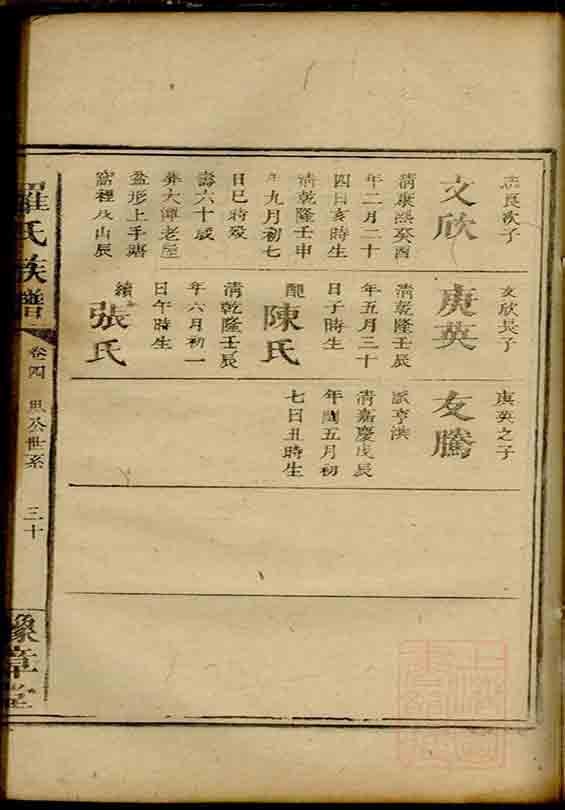 志良次子
文欣
清康熙癸酉
年二月二十
四日亥時生
清乾隆壬申
年九月初七
日巳時殁
壽六十歲
葬大潭老屋
盆形上手塘
窩裡戌山辰
文欣長子
庚英
清乾隆壬辰
年五月三十
日子時生
配
陳氏
清乾隆壬辰
年六月初一
日午時生
續
張氏
庚英之子
友騰
派亨洪
清嘉慶戊辰
年閏五月初
七日丑時生
羅氏族譜
卷四
公世系
三十
豫章堂